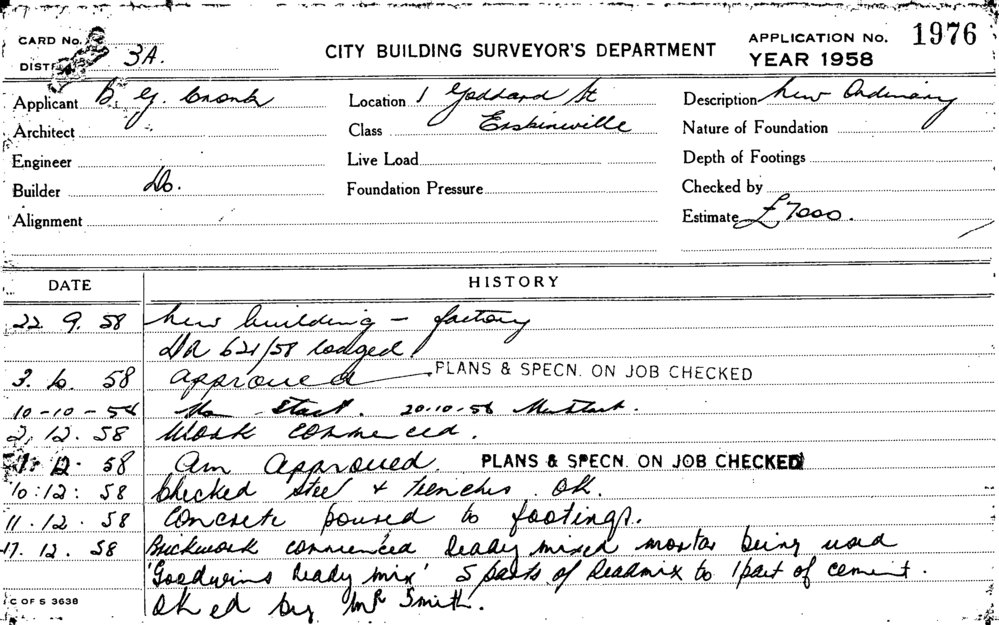 CARD No. CITY BUILDING SURVEYOR'S DEPARTMENT APPLICATION No. 1976
DIST 3A. YEAR 1958
Applicant B. G. Cronk Location 1 Goddard St Description New Ordinary
Architect Class Erskineville Nature of Foundation
Engineer Live Load Depth of Footings
Builder Do. Foundation Pressure Checked by
Alignment Estimate £7000.
DATE HISTORY
22 9. 58 New building - factory
DA 621/58 lodged
3. 10. 58 approved PLANS & SPECN. ON JOB CHECKED
10-10-58 No start. 20-10-58 No start.
2. 12. 58 Work commenced.
12. 58 Am Approved. PLANS & SPECN. ON JOB CHECKED
10:12: 58 Checked steel & trenches OK.
11. 12. 58 Concrete poured to footings.
17. 12. 58 Brickwork commenced Ready mixed mortar being used
'Goodwins Ready mix' 5 parts of Readmix to 1 part of cement.
C OF S 3638 OK ed by Mr Smith.